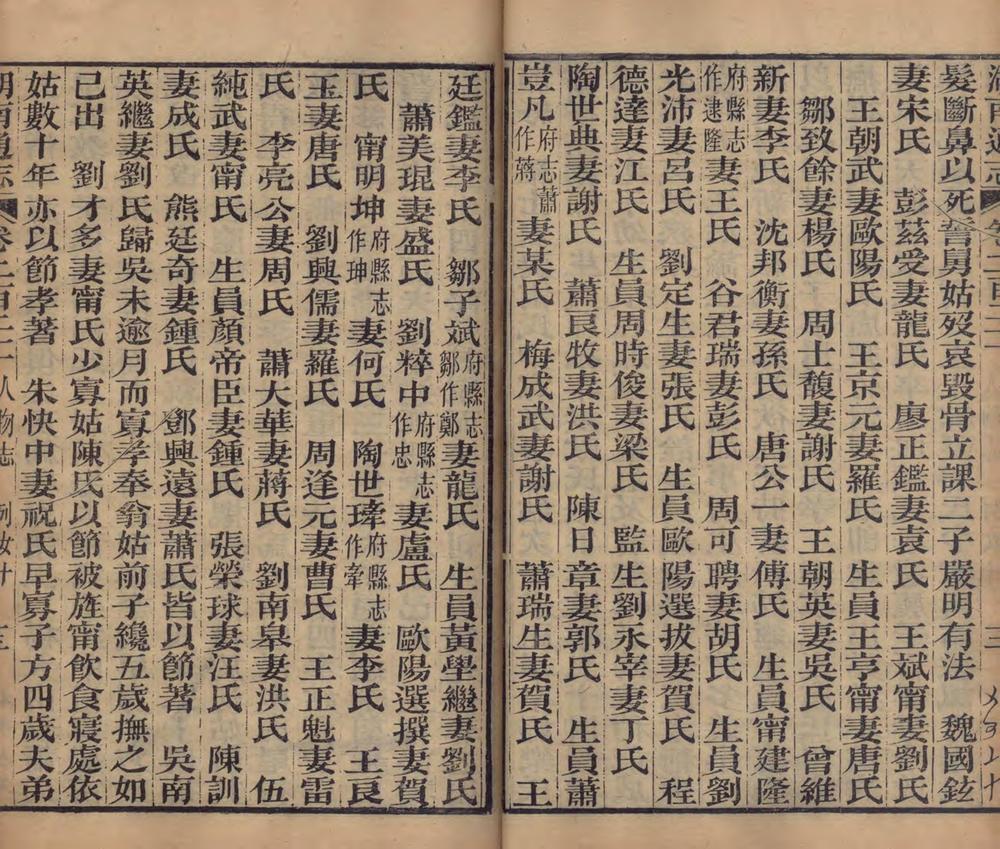 髮斷鼻以死誓舅姑歿哀毀骨立課二子嚴明有法　魏國鉉
妻宋氏　彭茲受妻龍氏　廖正鑑妻袁氏　王斌甯妻劉氏
王朝武妻歐陽氏　王京元妻羅氏　生員王亨甯妻唐氏
鄒致餘妻楊氏　周士馥妻謝氏　王朝英妻吳氏　曾維
新妻李氏　沈邦衡妻孫氏　唐公一妻傅氏　生員甯建隆
府縣志作逮隆妻王氏　谷君瑞妻彭氏　周可聘妻胡氏　生員劉
光沛妻呂氏　劉定生妻張氏　生員歐陽選拔妻賀氏　程
德達妻江氏　生員周時俊妻梁氏　監生劉永宰妻丁氏
陶世典妻謝氏　蕭良牧妻洪氏　陳日章妻郭氏　生員蕭
豈凡府志蕭作蔣妻某氏　梅成武妻謝氏　蕭瑞生妻賀氏　王
廷鑑妻李氏　鄒子斌府縣志鄒作鄭妻龍氏　生員黃學繼妻劉氏
蕭美琨妻盛氏　劉粹中府縣志作忠妻盧氏　歐陽選撰妻賀
氏　甯明坤府縣志作珅妻何氏　陶世瑋府縣志作夆妻李氏　王良
玉妻唐氏　劉興儒妻羅氏　周逢元妻曹氏　王正魁妻雷
氏　李亮公妻周氏　蕭大華妻蔣氏　劉南皋妻洪氏　伍
純武妻甯氏　生員顏帝臣妻鍾氏　張榮球妻汪氏　陳訓
妻成氏　熊廷奇妻鍾氏　鄧興遠妻蕭氏皆以節著　吳南
英繼妻劉氏歸吳未逾月而寡孝奉翁姑前子纔五歲撫之如
己出　劉才多妻甯氏少寡姑陳氏以節被旌甯飲食寢處依
姑數十年亦以節孝著　朱快中妻祝氏早寡子方四歲夫弟